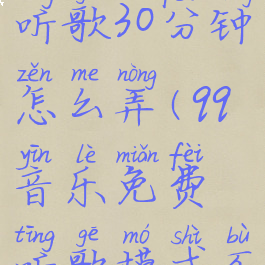 听歌30分钟
zěn me nòng
怎么弄(99
yīn lè miǎn fèi
音乐免费
tīng gē mó shì bù
听歌模式不